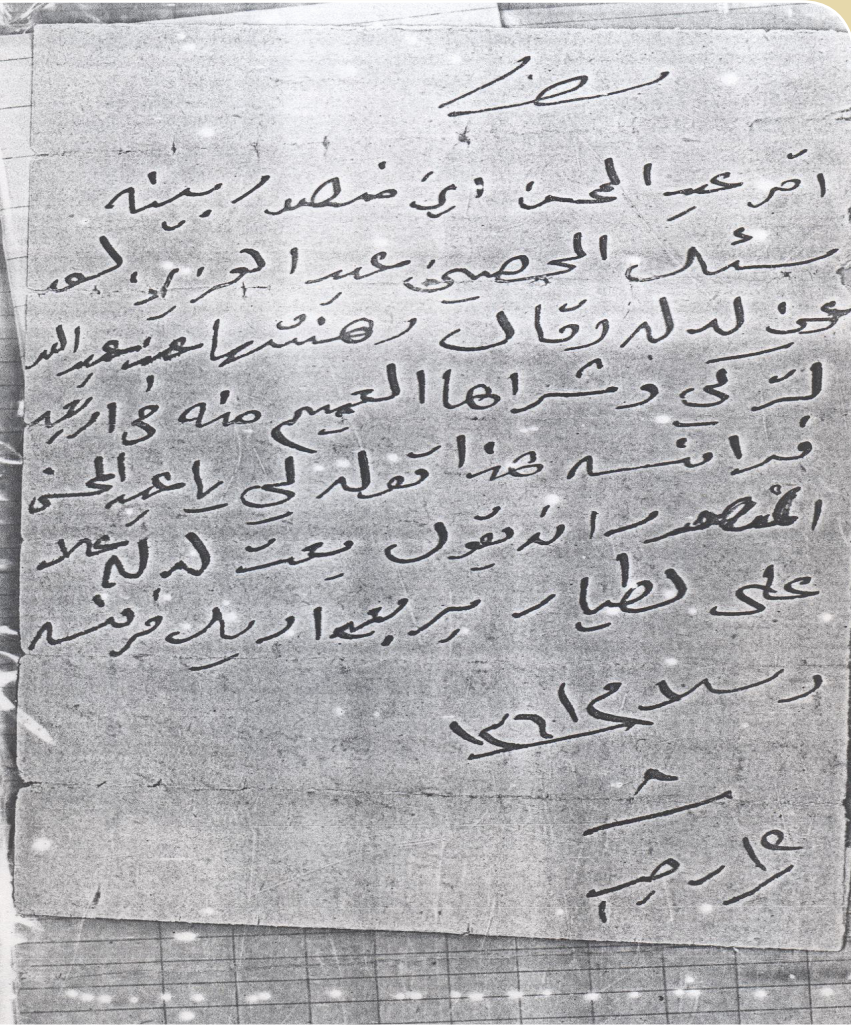 اقر عبد المحسن ابن منصور بينه
سئل المحصين عبد العزيز لسعد
عن لدله وقال رهنتها عند عبد الله
لتركي وشراها العميم منه في اربعه
فرانسه هذا قوله لي يا عبد المحسن
المنصور انه يقول بعت لدله
على لطيار بربعه اريل فرنسه
وسلام ١٣٦١
١٢ رجب